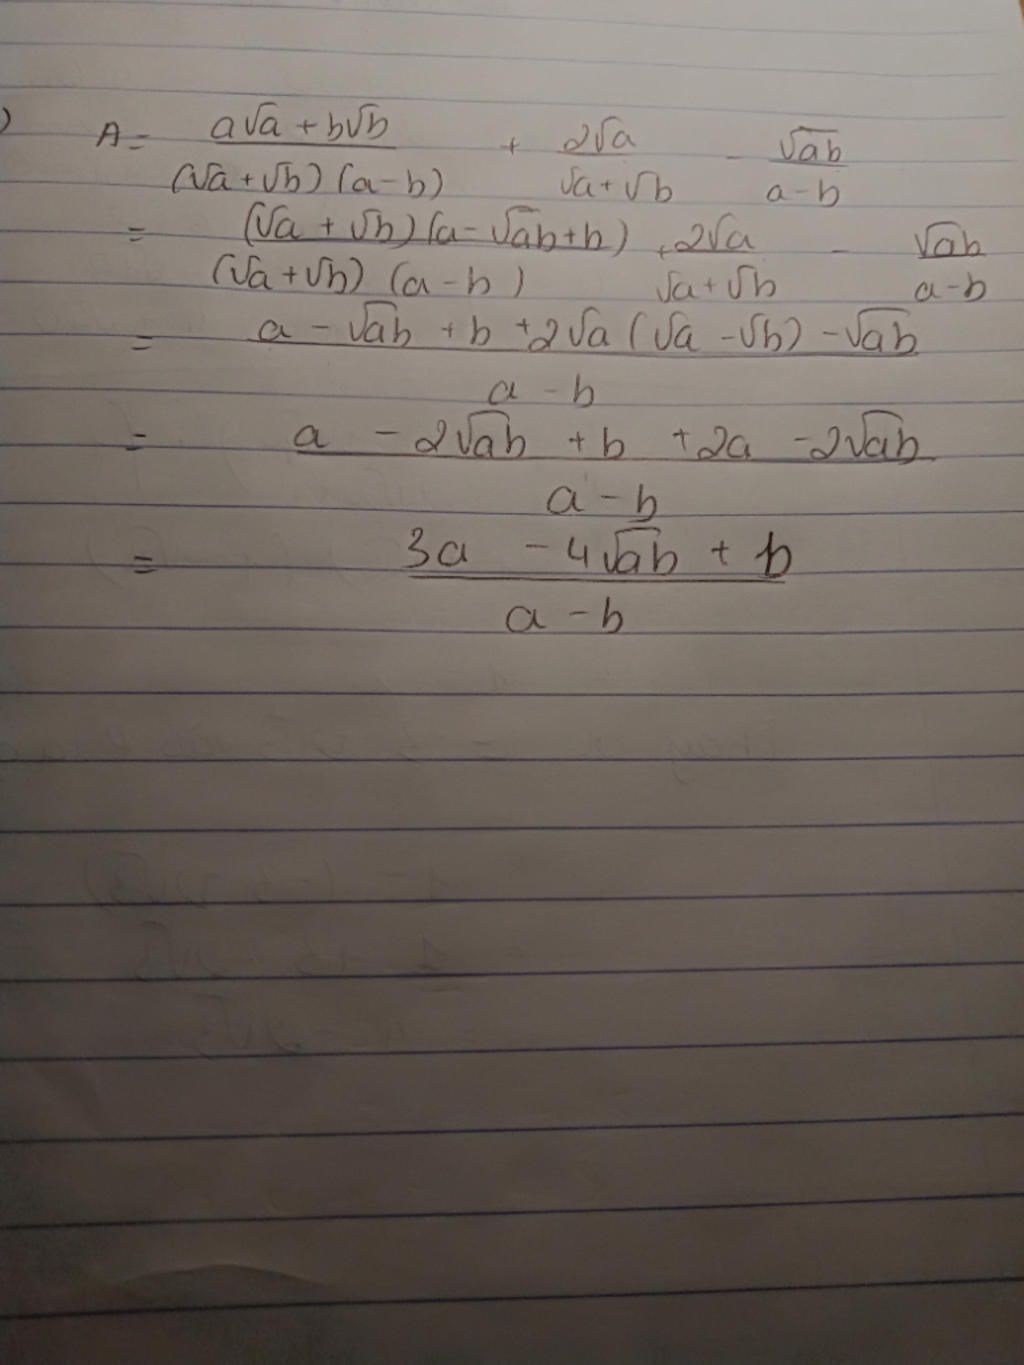 ) A = (a√a + b√b) / ((√a + √b)(a - b)) + 2√a / (√a + √b) - √ab / (a - b)
= (√a + √b)(a - √ab + b) / ((√a + √b)(a - b)) + 2√a / (√a + √b) - √ab / (a - b)
= (a - √ab + b + 2√a(√a - √b) - √ab) / (a - b)
= (a - 2√ab + b + 2a - 2√ab) / (a - b)
= (3a - 4√ab + b) / (a - b)